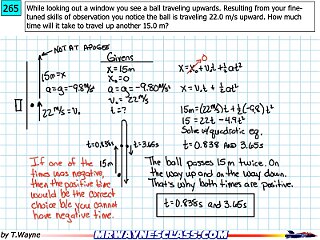 265
While looking out a window you see a ball traveling upwards. Resulting from your fine-
tuned skills of observation you notice the ball is traveling 22.0 m/s upward. How much
time will it take to travel up another 15.0 m?
NOT AT APOGEE
15m=x
a=g=-9.8 m/s²
22m/s=V₀
Givens
x=15m
x₀=0
a=g=-9.80m/s²
V₀=22m/s
t=?
x=x₀+V₀t+½at²
0
x=V₀t+½at²
15m=(22m/s)t+½(-9.8)t²
15=22t-4.9t²
Solve w/quadratic eq.
t=0.838 AND 3.65s
t=0.838s
t=3.65s
15m
If one of the
times was negative,
then the positive time
would be the correct
choice b/c you cannot
have negative time.
The ball passes 15m twice. On
the way up and on the way down.
That's why both times are positive.
t=0.838s and 3.65s
by T.Wayne
MRWAYNESCLASS.COM